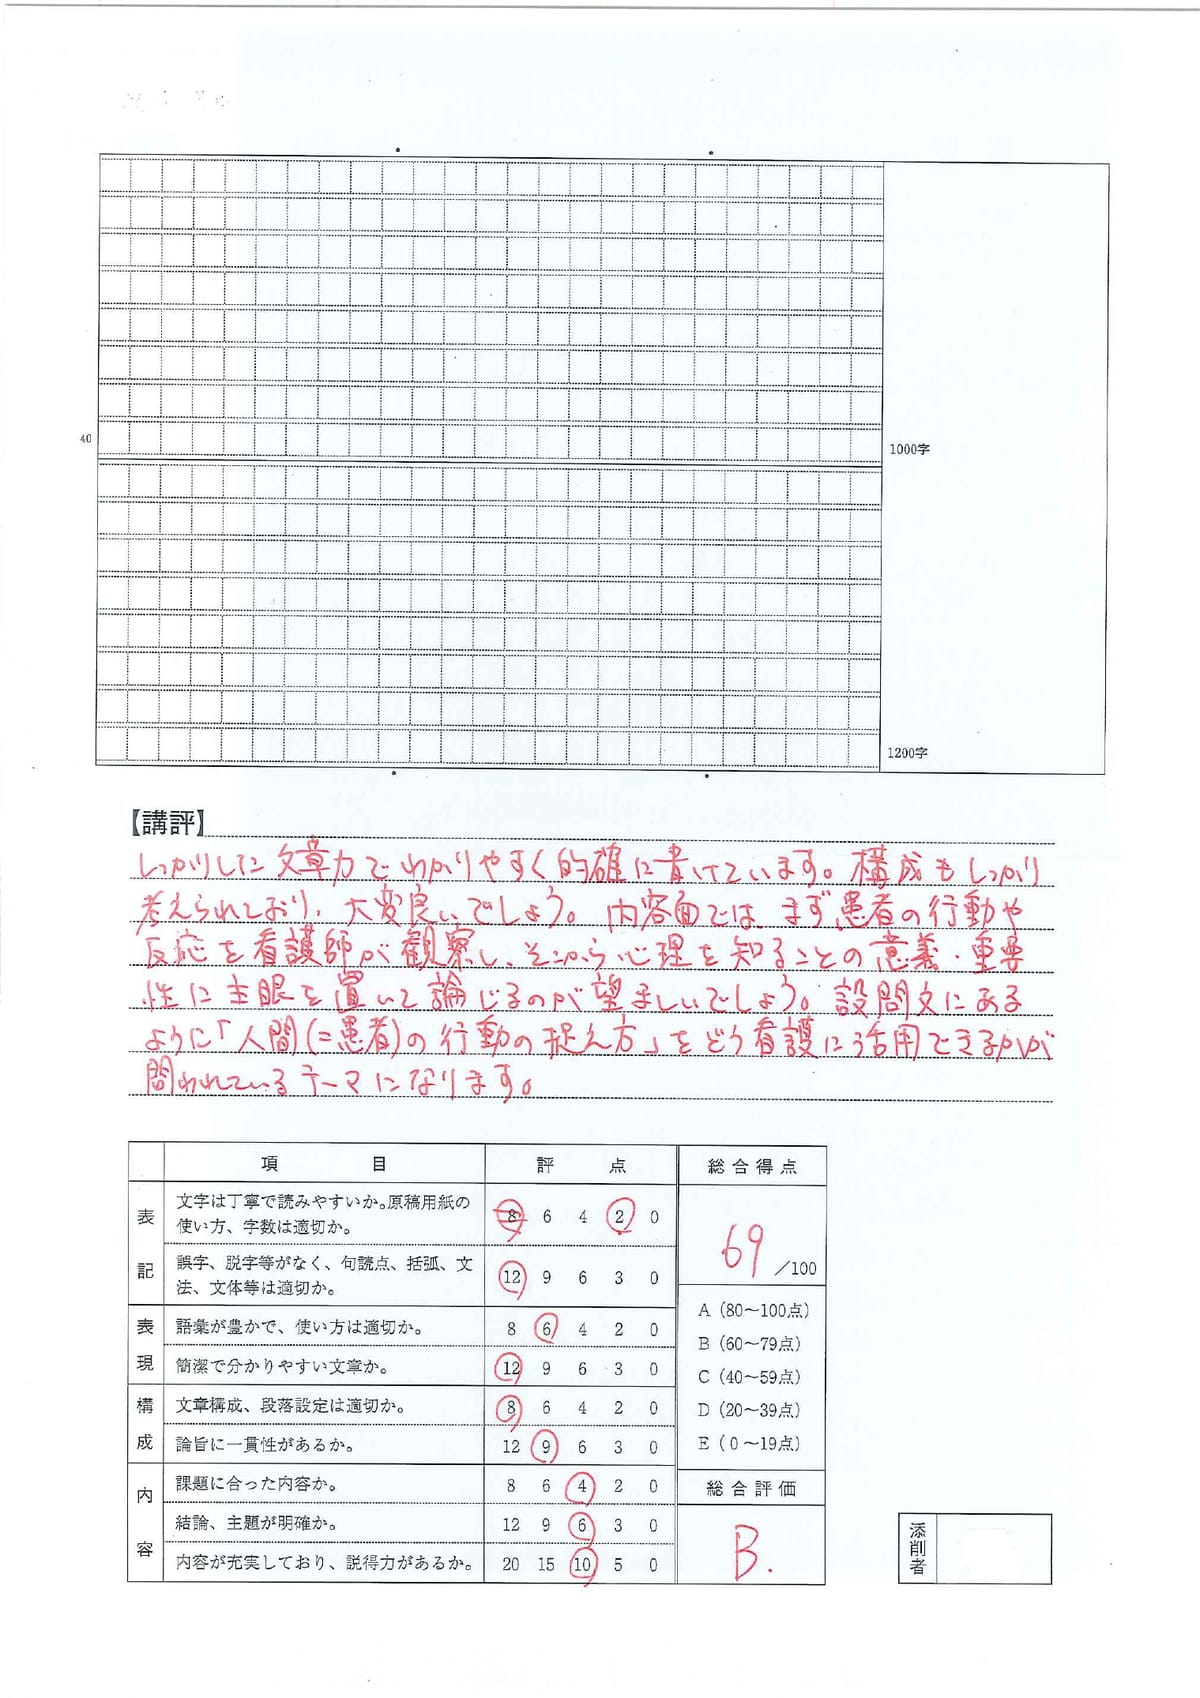 40
1000字
1200字
【講評】
しっかりした文章力でわかりやすく的確に書けています。構成もしっかり
考えられており、大変良いでしょう。内容面では、まず患者の行動や
反応を看護師が観察し、そこから心理を知ることの意義・重要
性に主眼を置いて論じるのが望ましいでしょう。設問文にある
ように「人間(=患者)の行動の捉え方」をどう看護に活用できるかが
問われているテーマになります。
項目 評点 総合得点
表記 文字は丁寧で読みやすいか。原稿用紙の
使い方、字数は適切か。 8 6 4 2 0
69 /100
誤字、脱字等がなく、句読点、括弧、文
法、文体等は適切か。 12 9 6 3 0
表現 語彙が豊かで、使い方は適切か。 8 6 4 2 0
簡潔で分かりやすい文章か。 12 9 6 3 0
構成 文章構成、段落設定は適切か。 8 6 4 2 0
論旨に一貫性があるか。 12 9 6 3 0
内容 課題に合った内容か。 8 6 4 2 0
結論、主題が明確か。 12 9 6 3 0
内容が充実しており、説得力があるか。 20 15 10 5 0
A(80～100点)
B(60～79点)
C(40～59点)
D(20～39点)
E(0～19点)
総合評価
B.
添削者